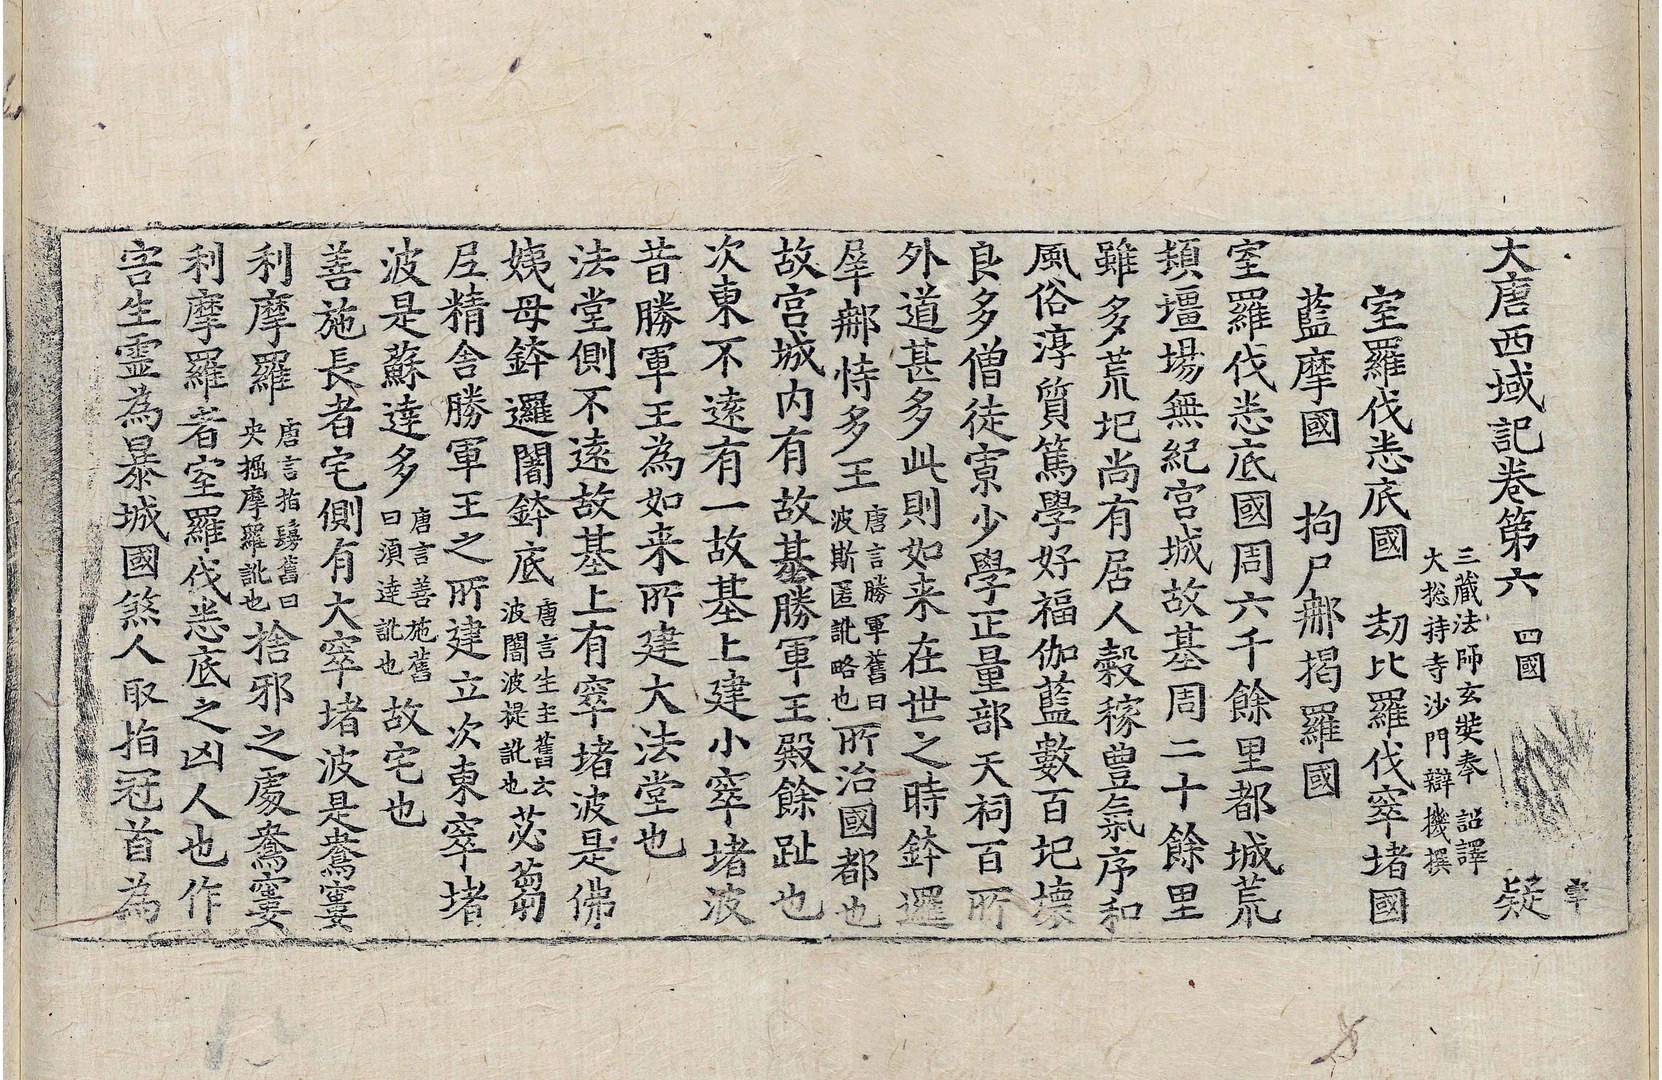 大唐西域記卷第六 四國 疑
三藏法師玄奘奉 詔譯
大揔持寺沙門辯機撰
室羅伐悉底國 劫比羅伐窣堵國
藍摩國 拘尸那揭羅國
室羅伐悉底國周六千餘里都城荒
頓壃場無紀宮城故基周二十餘里
雖多荒圮尚有居人穀稼豊氣序和
風俗淳質篤學好福伽藍數百圮壞
良多僧徒寡少學正量部天祠百所
外道甚多此則如来在世之時鉢邏
犀那恃多王唐言勝軍舊曰波斯匿訛略也所治國都也
故宮城内有故基勝軍王殿餘趾也
次東不遠有一故基上建小窣堵波
昔勝軍王為如来所建大法堂也
法堂側不遠故基上有窣堵波是佛
姨母鉢邏闍鉢底唐言生主舊云波闍波提訛也苾蒭
尼精舎勝軍王之所建立次東窣堵
波是蘇達多唐言善施舊曰須達訛也故宅也
善施長者宅側有大窣堵波是鴦窶
利摩羅唐言指鬘舊曰央掘摩羅訛也捨邪之處鴦窶
利摩羅者室羅伐悉底之凶人也作
害生靈為暴城國煞人取指冠首為